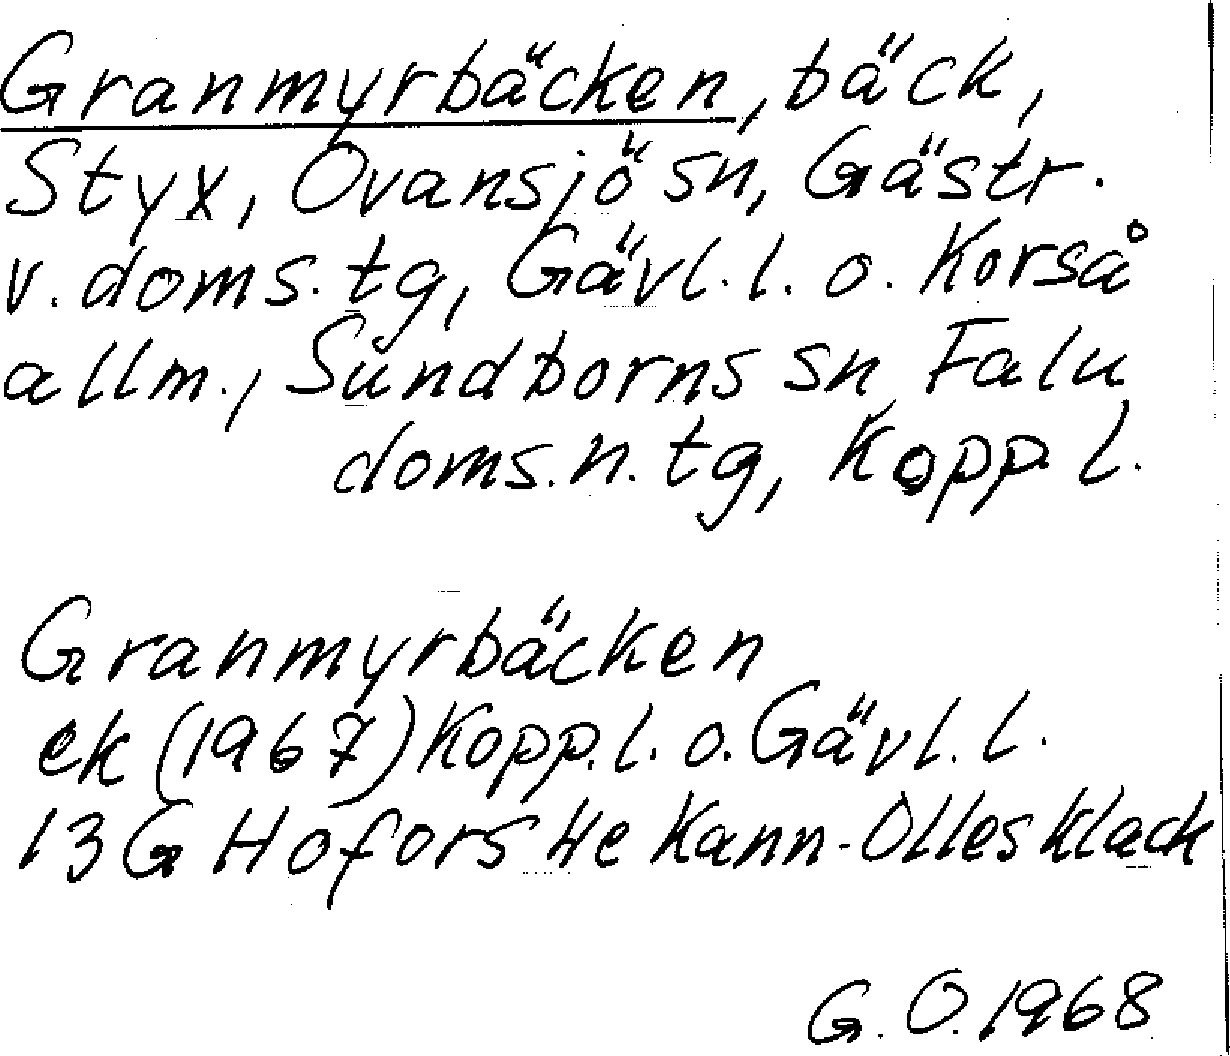 Granmyrbäcken, bäck,
Styx, Ovansjö sn, Gästr.
v. doms. tg, Gävl. l. o. Korså
allm., Sundborns sn, Falu
doms. n. tg, Kopp. l.
Granmyrbäcken
ek (1967) Kopp. l. o. Gävl. l.
13G Hofors 4e Kann-Olles Klack
G. O. 1968